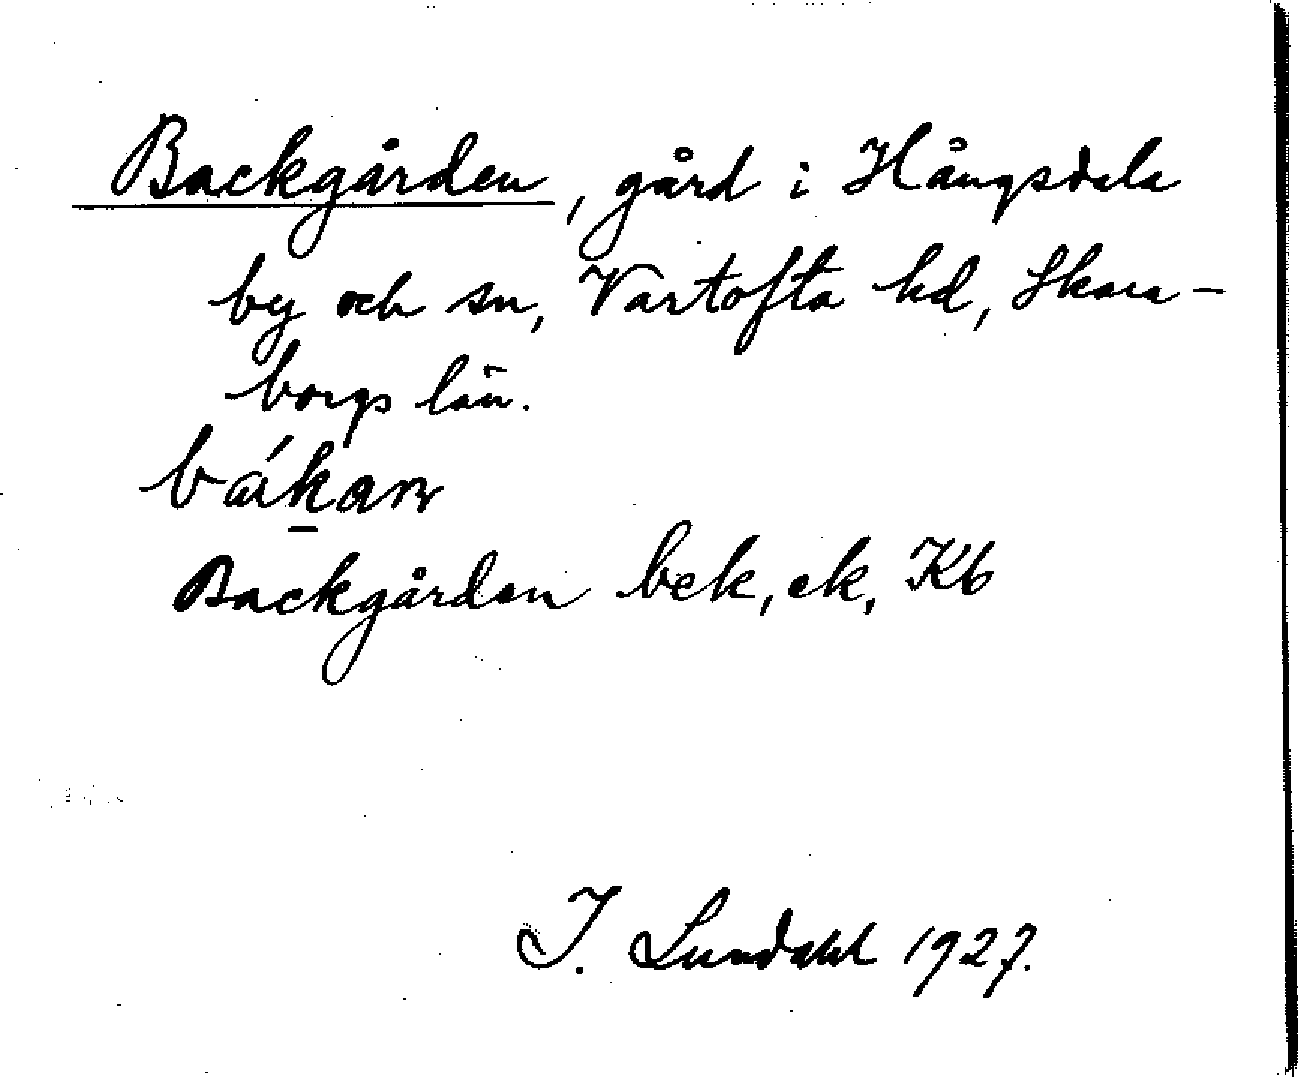 Backgården, gård i Hångsdala
by och sn, Vartofta hd, Skara-
borgs län.
Backgården bek, ek, Kb
I. Lundahl 1927.